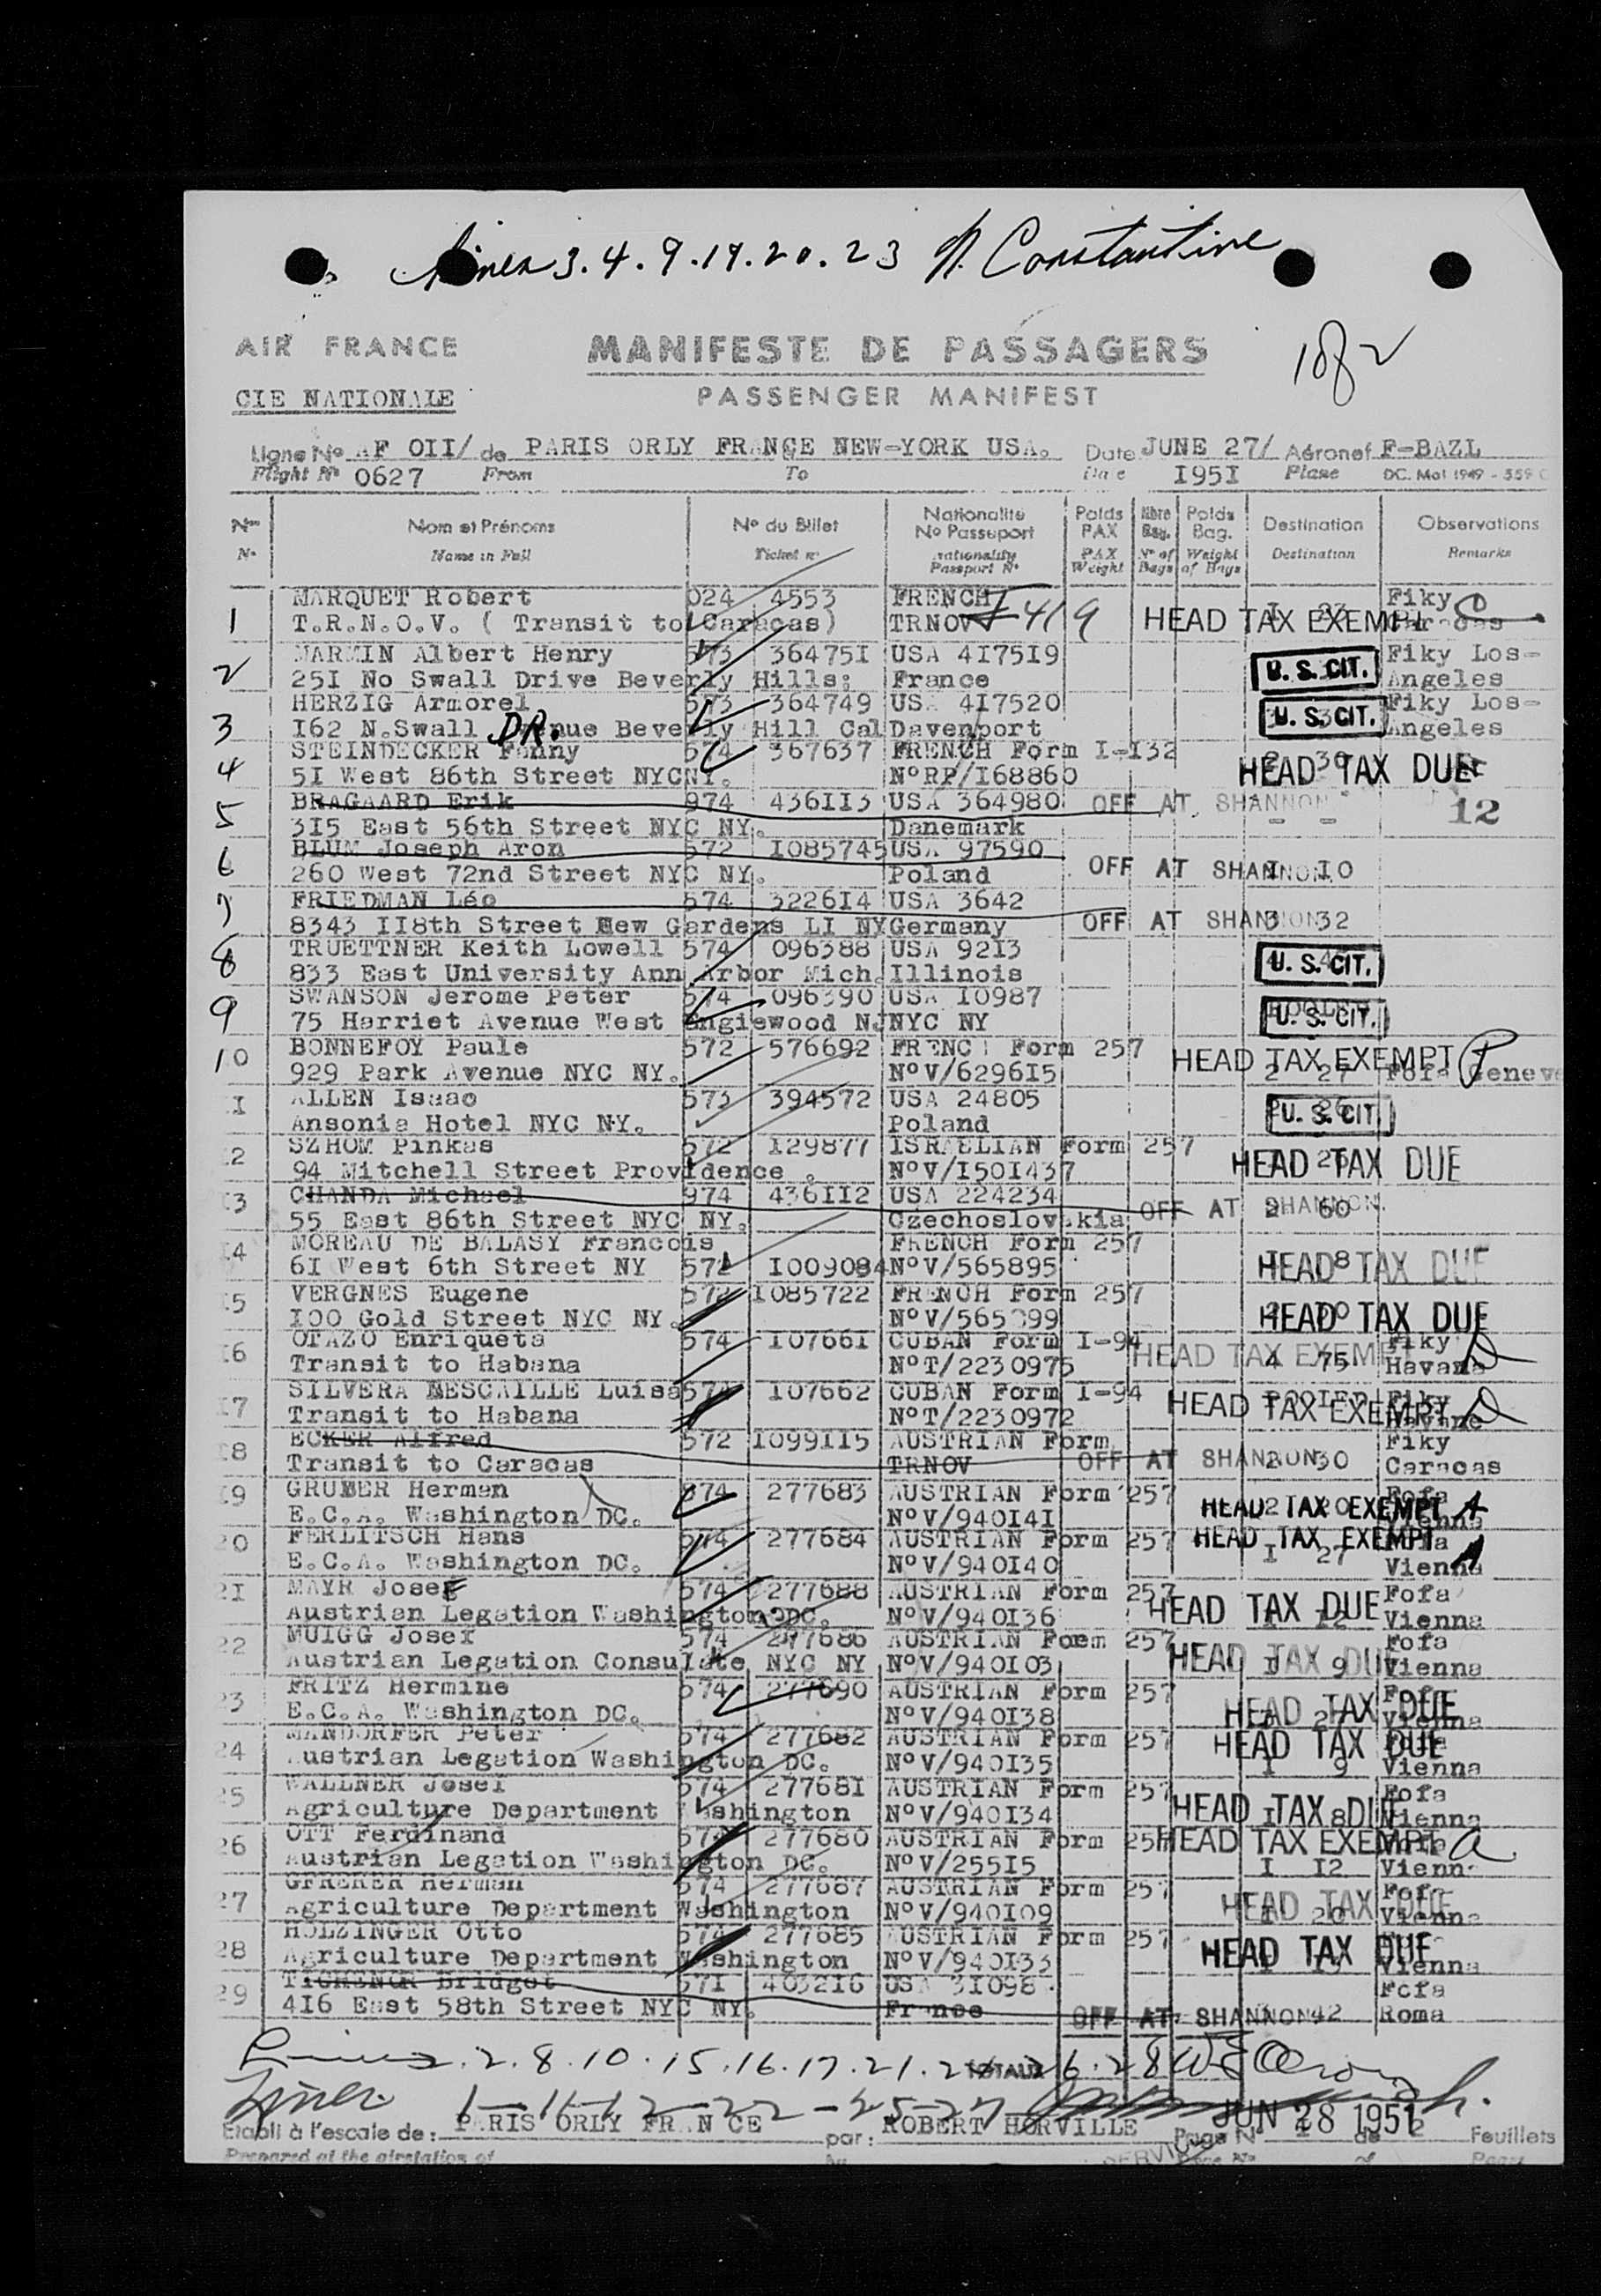 Lines 3. 4. 9. 19. 20. 23 N. Constantine
AIR FRANCE MANIFESTE DE PASSAGERS 1 of 2
CIE NATIONALE PASSENGER MANIFEST
Ligne No AF OII/ de PARIS ORLY FRANCE NEW-YORK USA. Date JUNE 27/ Aéronef F-BAZL
Flight No 0627 From To Date I95I Plane DC. Mol 1949 - 359
Nom et Prénoms No du Billet Nationalité No Passeport Poids PAX Nbre Bag. Poids Bag. Destination Observations
No Name in Full Ticket No Nationality Passport No PAX Weight No of Bags Weight of Bags Destination Remarks
MARQUET Robert 024 4553 FRENCH Fiky
1 T.R.N.O.V. ( Transit to Caracas) TRNOV 419 HEAD TAX EXEMPT Caracas
MARMIN Albert Henry 573 36475I USA 4I75I9 Fiky Los-
2 25I No Swall Drive Beverly Hills; France U. S. CIT. Angeles
HERZIG Armorel 573 364749 USA 4I7520 Fiky Los-
3 I62 N.Swall DR. Avenue Beverly Hill Cal Davenport U. S. CIT. Angeles
STEINDECKER Fanny 574 367637 FRENCH Form I-I32 2 30
4 5I West 86th Street NYC NY. No RP/I68860 HEAD TAX DUE
BRAGAARD Erik 974 436II3 USA 364980 OFF AT SHANNON
5 3I5 East 56th Street NYC NY. Danemark - - 12
BLUM Joseph Aron 572 I085745 USA 97590
6 260 West 72nd Street NYC NY. Poland OFF AT SHANNON I I0
FRIEDMAN Léo 574 3226I4 USA 3642
7 8343 II8th Street Kew Gardens LI NY Germany OFF AT SHANNON 3 32
TRUETTNER Keith Lowell 574 096388 USA 92I3
8 833 East University Ann Arbor Mich. Illinois U. S. CIT.
SWANSON Jerome Peter 574 096390 USA I0987
9 75 Harriet Avenue West Englewood NJ NYC NY U. S. CIT.
BONNEFOY Paule 572 576692 FRENCH Form 257 HEAD TAX EXEMPT
10 929 Park Avenue NYC NY. No V/6296I5 2 27 Fofa Geneve
II ALLEN Isaac 573 394572 USA 24805
Ansonia Hotel NYC NY. Poland U. S. CIT.
I2 SZHOM Pinkas 572 I29877 ISRAELIAN Form 257
94 Mitchell Street Providence . No V/I50I437 HEAD TAX DUE
I3 CHANDA Michael 974 436II2 USA 224234 OFF AT SHANNON 2 60
55 East 86th Street NYC NY. Czechoslovakia
I4 MOREAU DE BALASY Francois FRENCH Form 257
6I West 6th Street NY 572 I009084 No V/565895 HEAD TAX DUE
I5 VERGNES Eugene 572 I085722 FRENCH Form 257
I00 Gold Street NYC NY. No V/565899 HEAD TAX DUE
I6 OTAZO Enriqueta 574 I0766I CUBAN Form I-94 HEAD TAX EXEMPT Fiky
Transit to Habana No T/2230975 4 75 Havana
I7 SILVERA MESCAILLE Luisa 574 I07662 CUBAN Form I-94 POOLED Fiky
Transit to Habana No T/2230972 HEAD TAX EXEMPT Havane
I8 ECKER Alfred 572 I099II5 AUSTRIAN Form Fiky
Transit to Caracas TRNOV OFF AT SHANNON 2 30 Caracas
I9 GRUBER Herman 574 277683 AUSTRIAN Form 257 Fofa
E.C.A. Washington DC. No V/940I4I HEAD TAX EXEMPT 2 20 Vienna
20 FERLITSCH Hans 574 277684 AUSTRIAN Form 257 HEAD TAX EXEMPT Fofa
E.C.A. Washington DC. No V/940I40 I 27 Vienna
2I MAYR Josef 574 277688 AUSTRIAN Form 257 Fofa
Austrian Legation Washington DC. No V/940I36 HEAD TAX DUE I I2 Vienna
22 MUIGG Josef 574 277686 AUSTRIAN Foem 257 Fofa
Austrian Legation Consulate NYC NY No V/940I03 HEAD TAX DUE I 9 Vienna
23 FRITZ Hermine 574 277690 AUSTRIAN Form 257 Fofa
E.C.A. Washington DC. No V/940I38 HEAD TAX DUE Vienna
24 MANDORFER Peter 574 277682 AUSTRIAN Form 257 HEAD TAX DUE Fofa
Austrian Legation Washington DC. No V/940I35 I 9 Vienna
25 WALLNER Josef 574 27768I AUSTRIAN Form 257 Fofa
Agriculture Department Washington No V/940I34 HEAD TAX DUE I 8 Vienna
26 OTT Ferdinand 574 277680 AUSTRIAN Form 257 HEAD TAX EXEMPT Fofa
Austrian Legation Washington DC. No V/255I5 I I2 Vienna
27 GFRERER Herman 574 277687 AUSTRIAN Form 257 Fofa
Agriculture Department Washington No V/940I09 HEAD TAX DUE I 20 Vienna
28 HOLZINGER Otto 574 277685 AUSTRIAN Form 257
Agriculture Department Washington No V/940I33 HEAD TAX DUE Vienna
29 TICHENOR Bridget 57I 4032I6 USA 3I098 Fofa
4I6 East 58th Street NYC NY. France OFF AT SHANNON 42 Roma
Lines 2. 8. 10. 15. 16. 17. 21. 24 TOTAUX 26. 28
Lines 1-11-12-22-25-27
Etabli à l'escale de: PARIS ORLY FRANCE par: ROBERT HORVILLE JUN 28 1951 Page No 1 de 2 Feuillets
Prepared at the airstation of by Page No of Pages